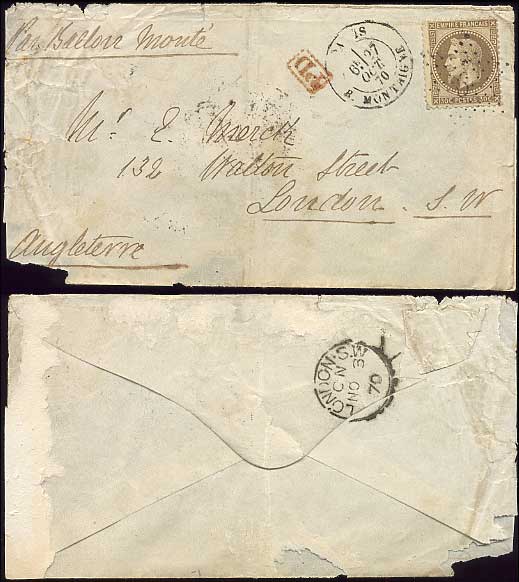 Par Ballon Monté
PD
PARIS
6E 27
OCT.
70
R. MONTAIGNE
EMPIRE FRANÇAIS
30C POSTES 30C
Mr. E. Merck
132 Walton Street
London. S. W
Angleterre
LONDON. S.W
NO 3
70